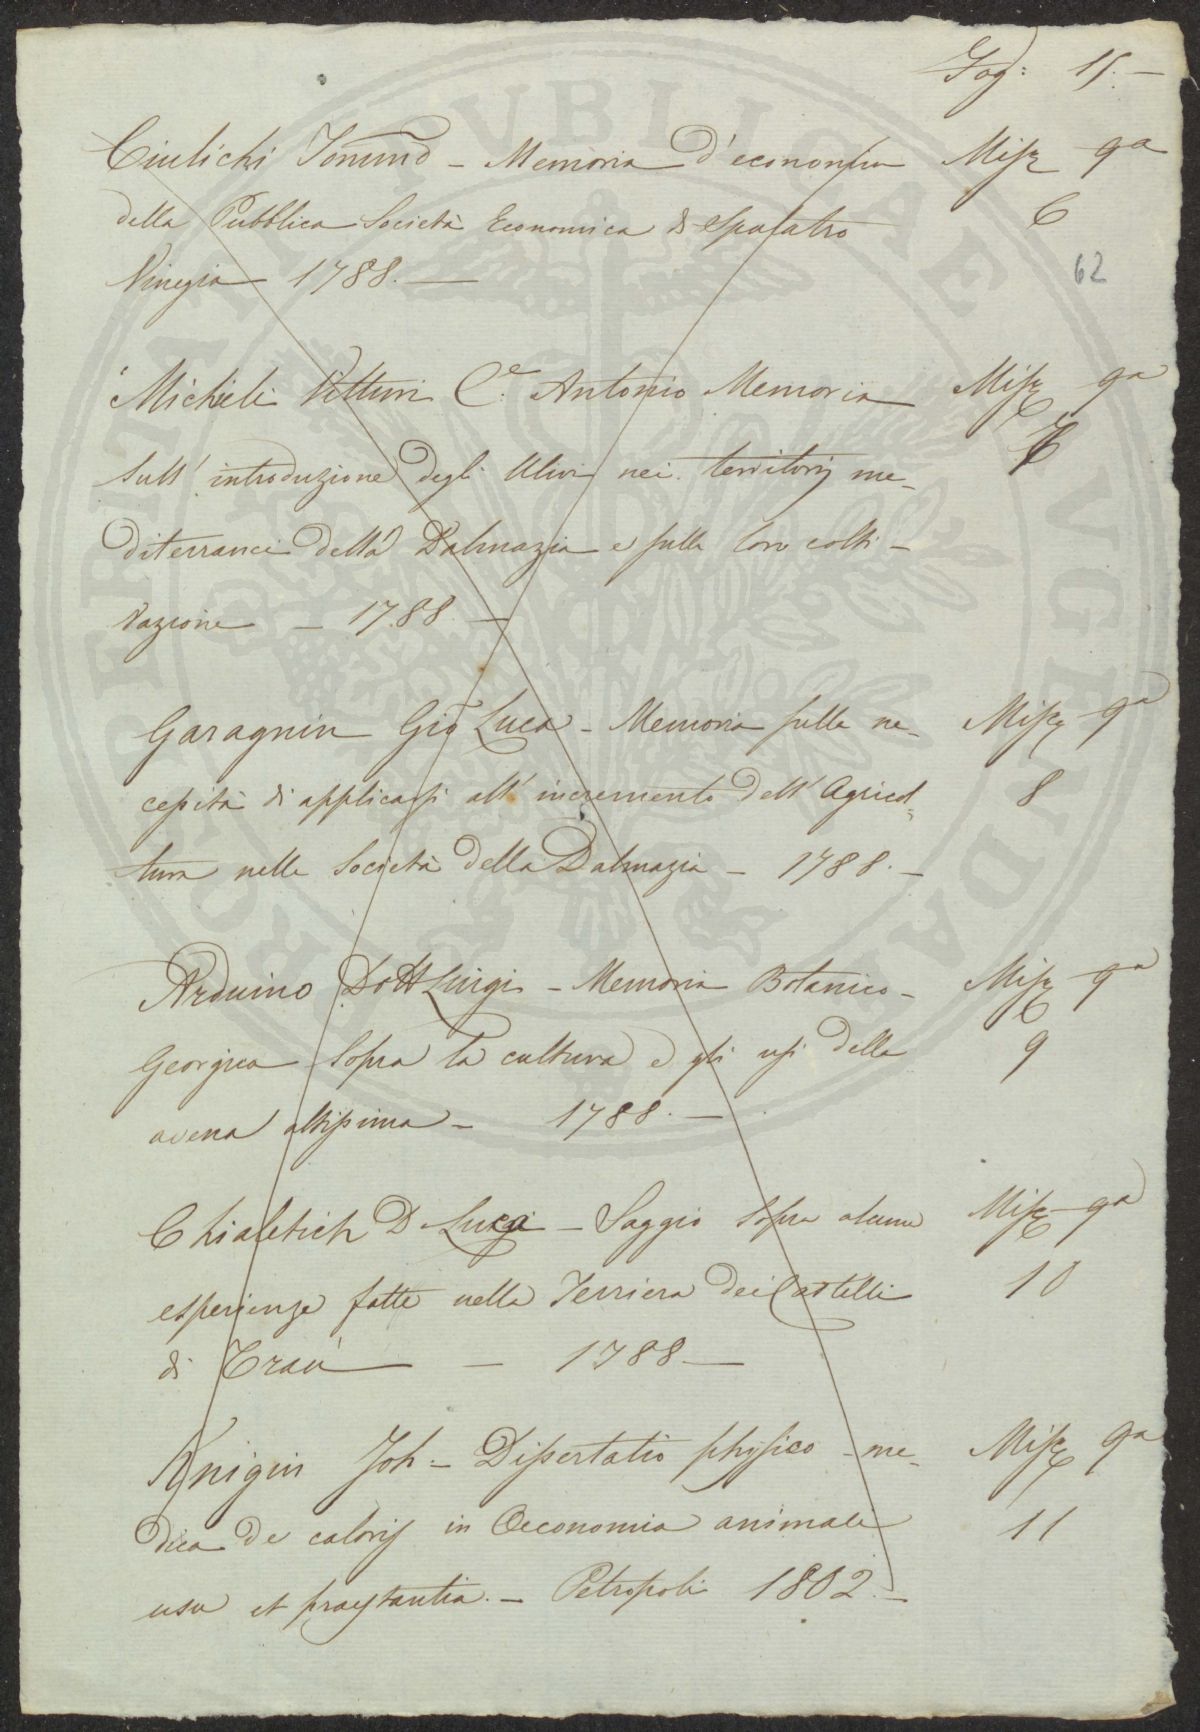 Fog: 15.—
Ciulichi — Memoria d'economia Misc 9a
della Pubblica Società Economica di Spalatro 6
Vinegia 1788.—
62
Micheli Vitturi Ce. Antonio Memoria Misc 9a
sull' introduzione degli Ulivi nei territorj me- 7
diterranei della Dalmazia e sulla loro colti-
vazione — 1788.—
Garagnin Gio Luca - Memoria sulla ne- Misc 9a
cessità di applicarsi all' incremento dell' Agricol= 8
tura nelle Società della Dalmazia — 1788.—
Arduino Dott Luigi - Memoria Botanico- Misc 9a
Georgica sopra la cultura e gli usi della 9
avena altissima — 1788.—
Chialetich D Luca — Saggio sopra alcune Misc 9a
esperienze fatte nella Terriera dei Castelli 10
di Traù — 1788—
Knigin Joh - Dissertatio physico - me- Misc 9a
dica De caloris in Oeconomia animali 11
usu et praestantia. — Petropoli 1802.—
PUBLICAE